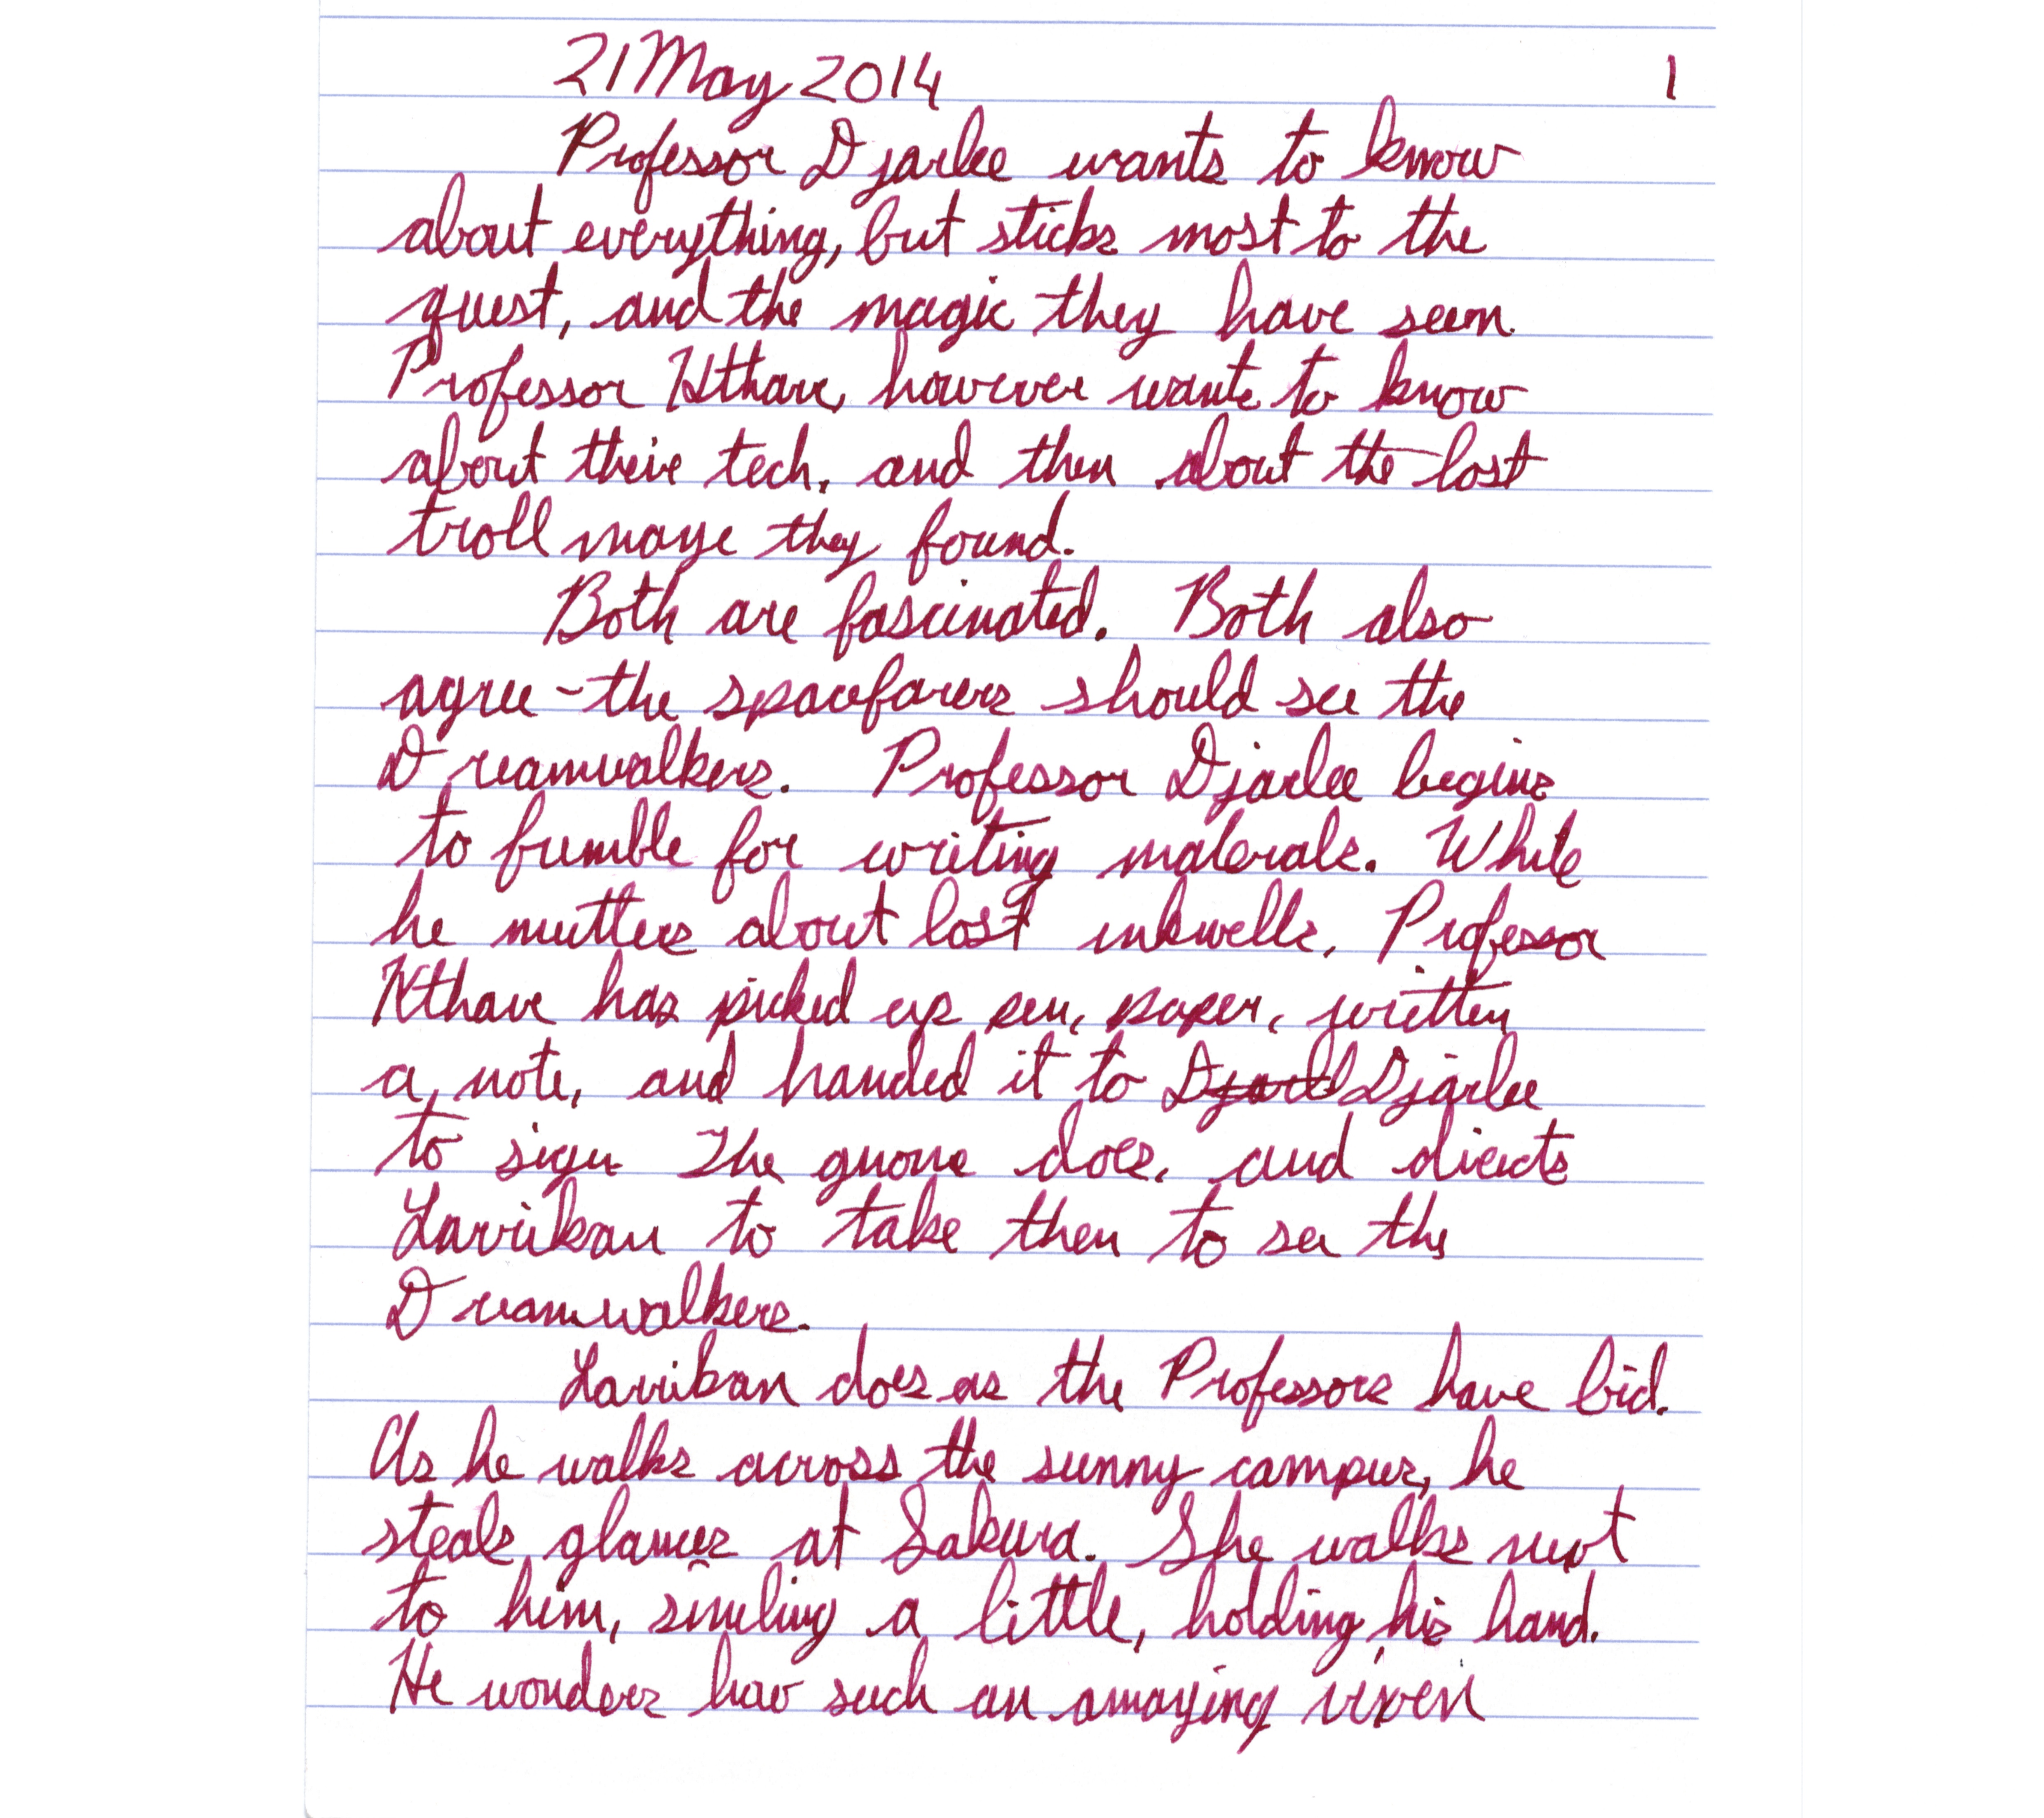 21 May 2014 1
Professor Djarlee wants to know
about everything, but sticks most to the
quest, and the magic they have seen.
Professor Kthare, however wants to know
about their tech, and then about the lost
troll maze they found.
Both are fascinated. Both also
agree - the spacefarers should see the
Dreamwalkers. Professor Djarlee begins
to fumble for writing materals. While
he mutters about lost inkwells, Professor
Kthare has picked up pen, paper, written
a note, and handed it to Djarl Djarlee
to sign The gnome does, and directs
Larrikan to take them to see the
Dreamwalkers.
Larrikan does as the Professors have bid.
As he walks across the sunny campus, he
steals glances at Sakura. She walks next
to him, smiling a little, holding his hand.
He wonders how such an amazing vixen